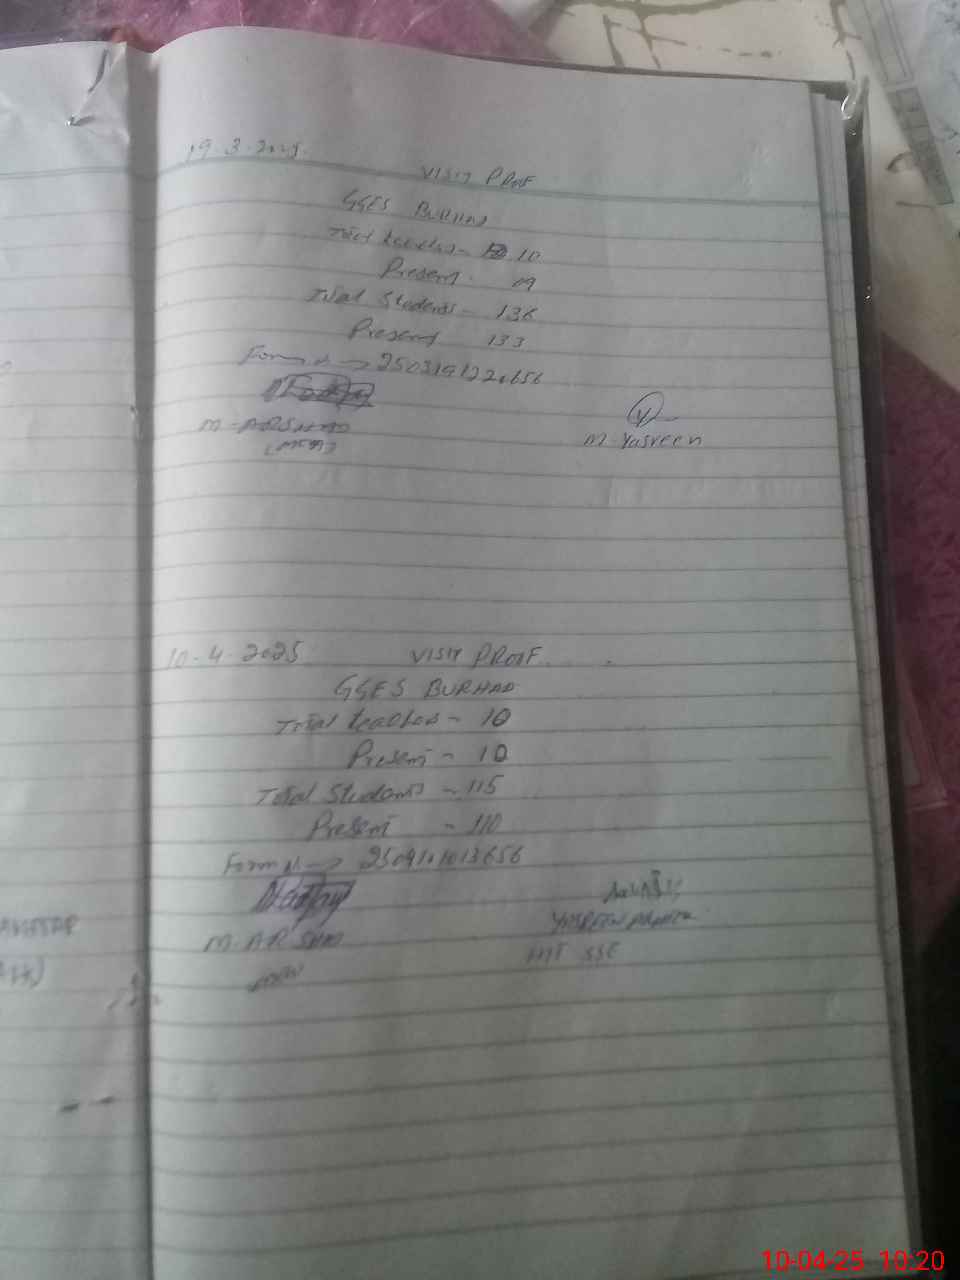 19.3.2025
VISIT PROOF
GGES BURHAD
Total teachers - 10
Present - 09
Total Students - 136
Present 133
Form N → 250319122656
M. ARSHAD
(MEA)
M. Yasreen
10.4.2025 VISIT PROOF
GGES BURHAD
Total teachers - 10
Present - 10
Total Students - 115
Present - 110
Form N → 2504101013656
M. ARSHAD
YASREEN
HT SSE
10-04-25 10:20